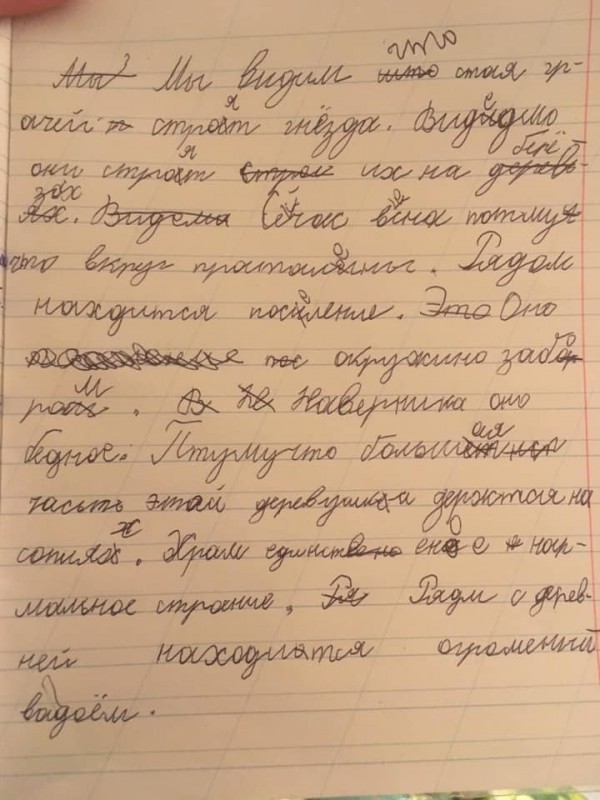 Мы видим что стая гр-
ачей строят гнёзда. Видедимо
они строят их на берё-
зах. Сейчас весна потму
что вкруг праталены. Рядом
находится поселение. Оно
окружино забо
ром. Наверника оно
бедное. Птумучто большая
часть этай деревушка держтся на
сопилях. Храм единств еное нар-
мальное строние. Рядм с дерев-
ней находиятся огроменный
вадоём.